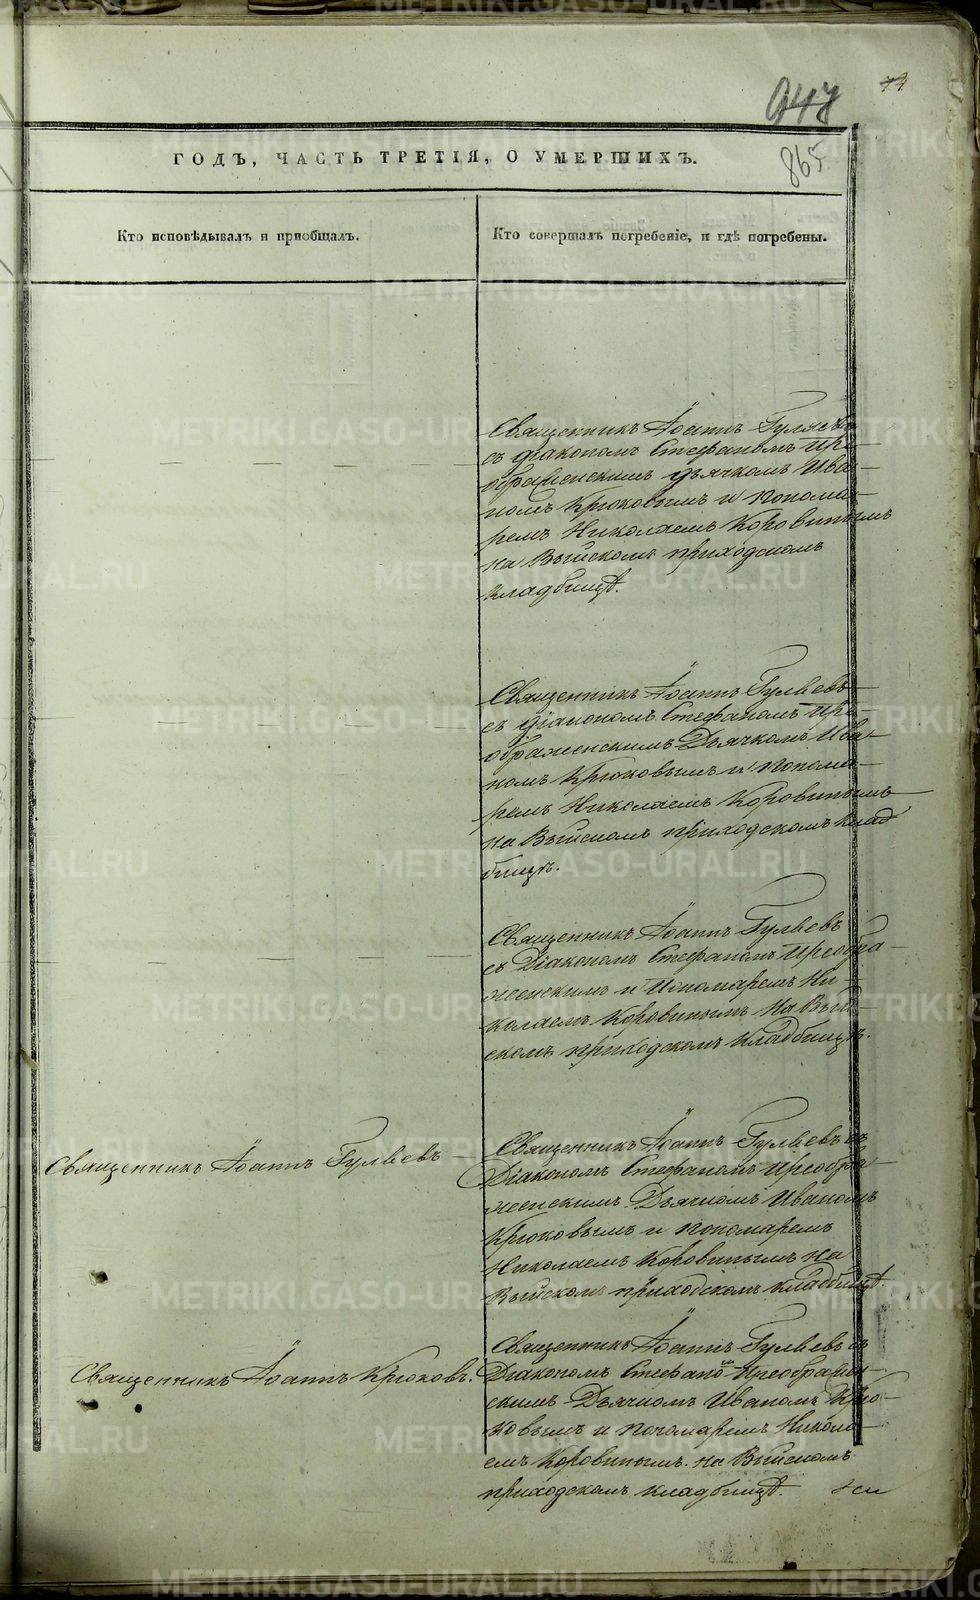 947
865
ГОДЪ, ЧАСТЬ ТРЕТІЯ, О УМЕРШИХЪ.
Кто исповѣдывалъ и пріобщалъ.
Кто совершалъ погребеніе, и гдѣ погребены.
Священникъ Іоаннъ Гуляевъ
съ діакономъ Стефаномъ Пре-
ображенскимъ дьячкомъ Ива-
номъ Крюковымъ и понома-
ремъ Николаемъ Коровинымъ
на Выйскомъ приходскомъ
кладбищѣ.
Священникъ Іоаннъ Гуляевъ
съ діакономъ Стефаномъ Пре-
ображенскимъ Дьячкомъ Ива-
номъ Крюковымъ и понома-
ремъ Николаемъ Коровинымъ
на Выйскомъ приходскомъ клад
бищѣ.
Священникъ Іоаннъ Гуляевъ
съ Діакономъ Стефаномъ Преобра-
женскимъ и Пономаремъ Ни-
колаемъ Коровинымъ на Вый-
скомъ приходскомъ кладбищѣ.
Священникъ Іоаннъ Гуляевъ
Священникъ Іоаннъ Гуляевъ съ
Діакономъ Стефаномъ Преобра-
женскимъ Дьячкомъ Иваномъ
Крюковымъ и пономаремъ
Николаемъ Коровинымъ на
Выйскомъ приходскомъ кладбищѣ.
Священникъ Іоаннъ Крюковъ.
Священникъ Іоаннъ Гуляевъ съ
Діакономъ Стефаномъ Преображен-
скимъ Дьячкомъ Иваномъ Крю-
ковымъ и пономаремъ Никола-
емъ Коровинымъ. на Выйскомъ
приходскомъ кладбищѣ.
METRIKI.GASO-URAL.RU